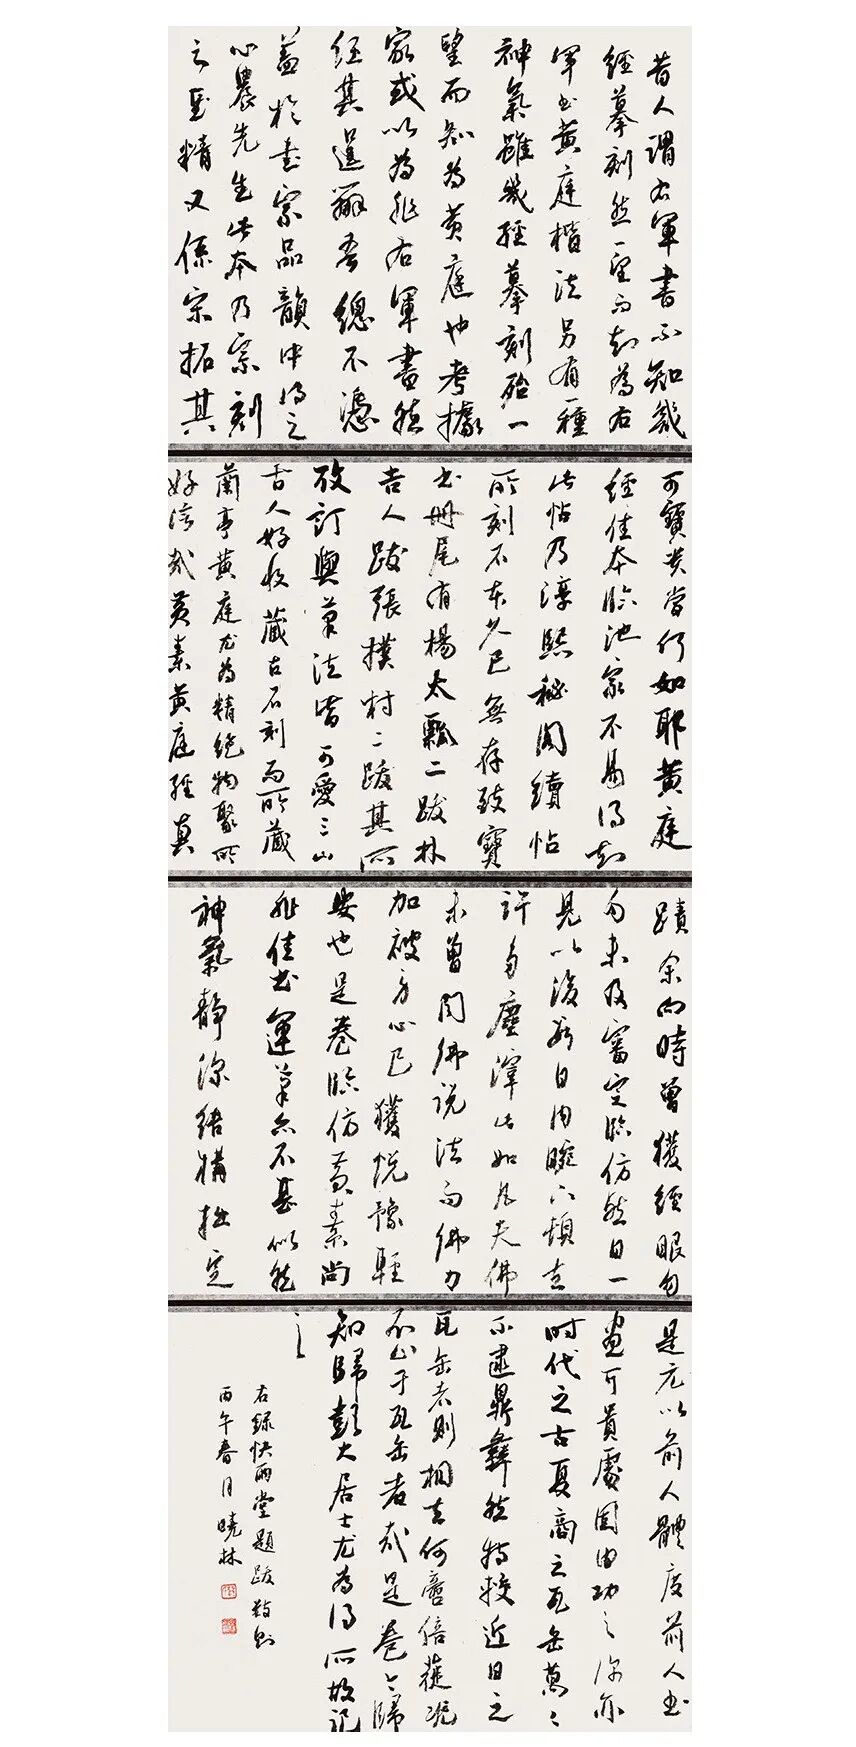 昔人謂右軍書不知幾
經摹刻然一望而知為右
軍書黃庭楷法另有一種
神氣雖幾經摹刻殆一
望而知為黃庭也考據
家或以為非右軍書然
任其逞辯吾總不憑
蓋於書家品韻中得之
心農先生此本乃宗刻
之至精又係宋拓其
可寶貴當何如耶黃庭
經佳本臨池家不易得知
此帖乃淳熙秘閣續帖
所刻石本久已無存致寶
書冊尾有楊太瓢二跋林
吉人跋張撲村二跋其所
攷訂與筆法皆可愛三山
舍人好收藏古石刻而所藏
蘭亭黃庭尤為精絕物聚所
好信哉黃素黃庭經真
蹟余向時曾獲經眼匆
匆未及審定臨仿然自一
見以後數日內腕下頓去
許多塵滓此如凡夫佛
未曾聞佛說法而佛力
加被身心已獲悅豫輕
安也是卷臨仿黃素尚
非佳書運筆亦不甚似然
神氣靜深結構拙定
是元以前人體度前人書
畫可貴處固由功之深亦
時代之古夏商之瓦缶萬萬
不逮鼎彝然特較近日之
瓦缶者則相去何啻倍蓰況
不止于瓦缶者哉是卷今歸
知歸彭大居士尤為得所故記
之
右錄快雨堂題跋數則
丙午春月曉林